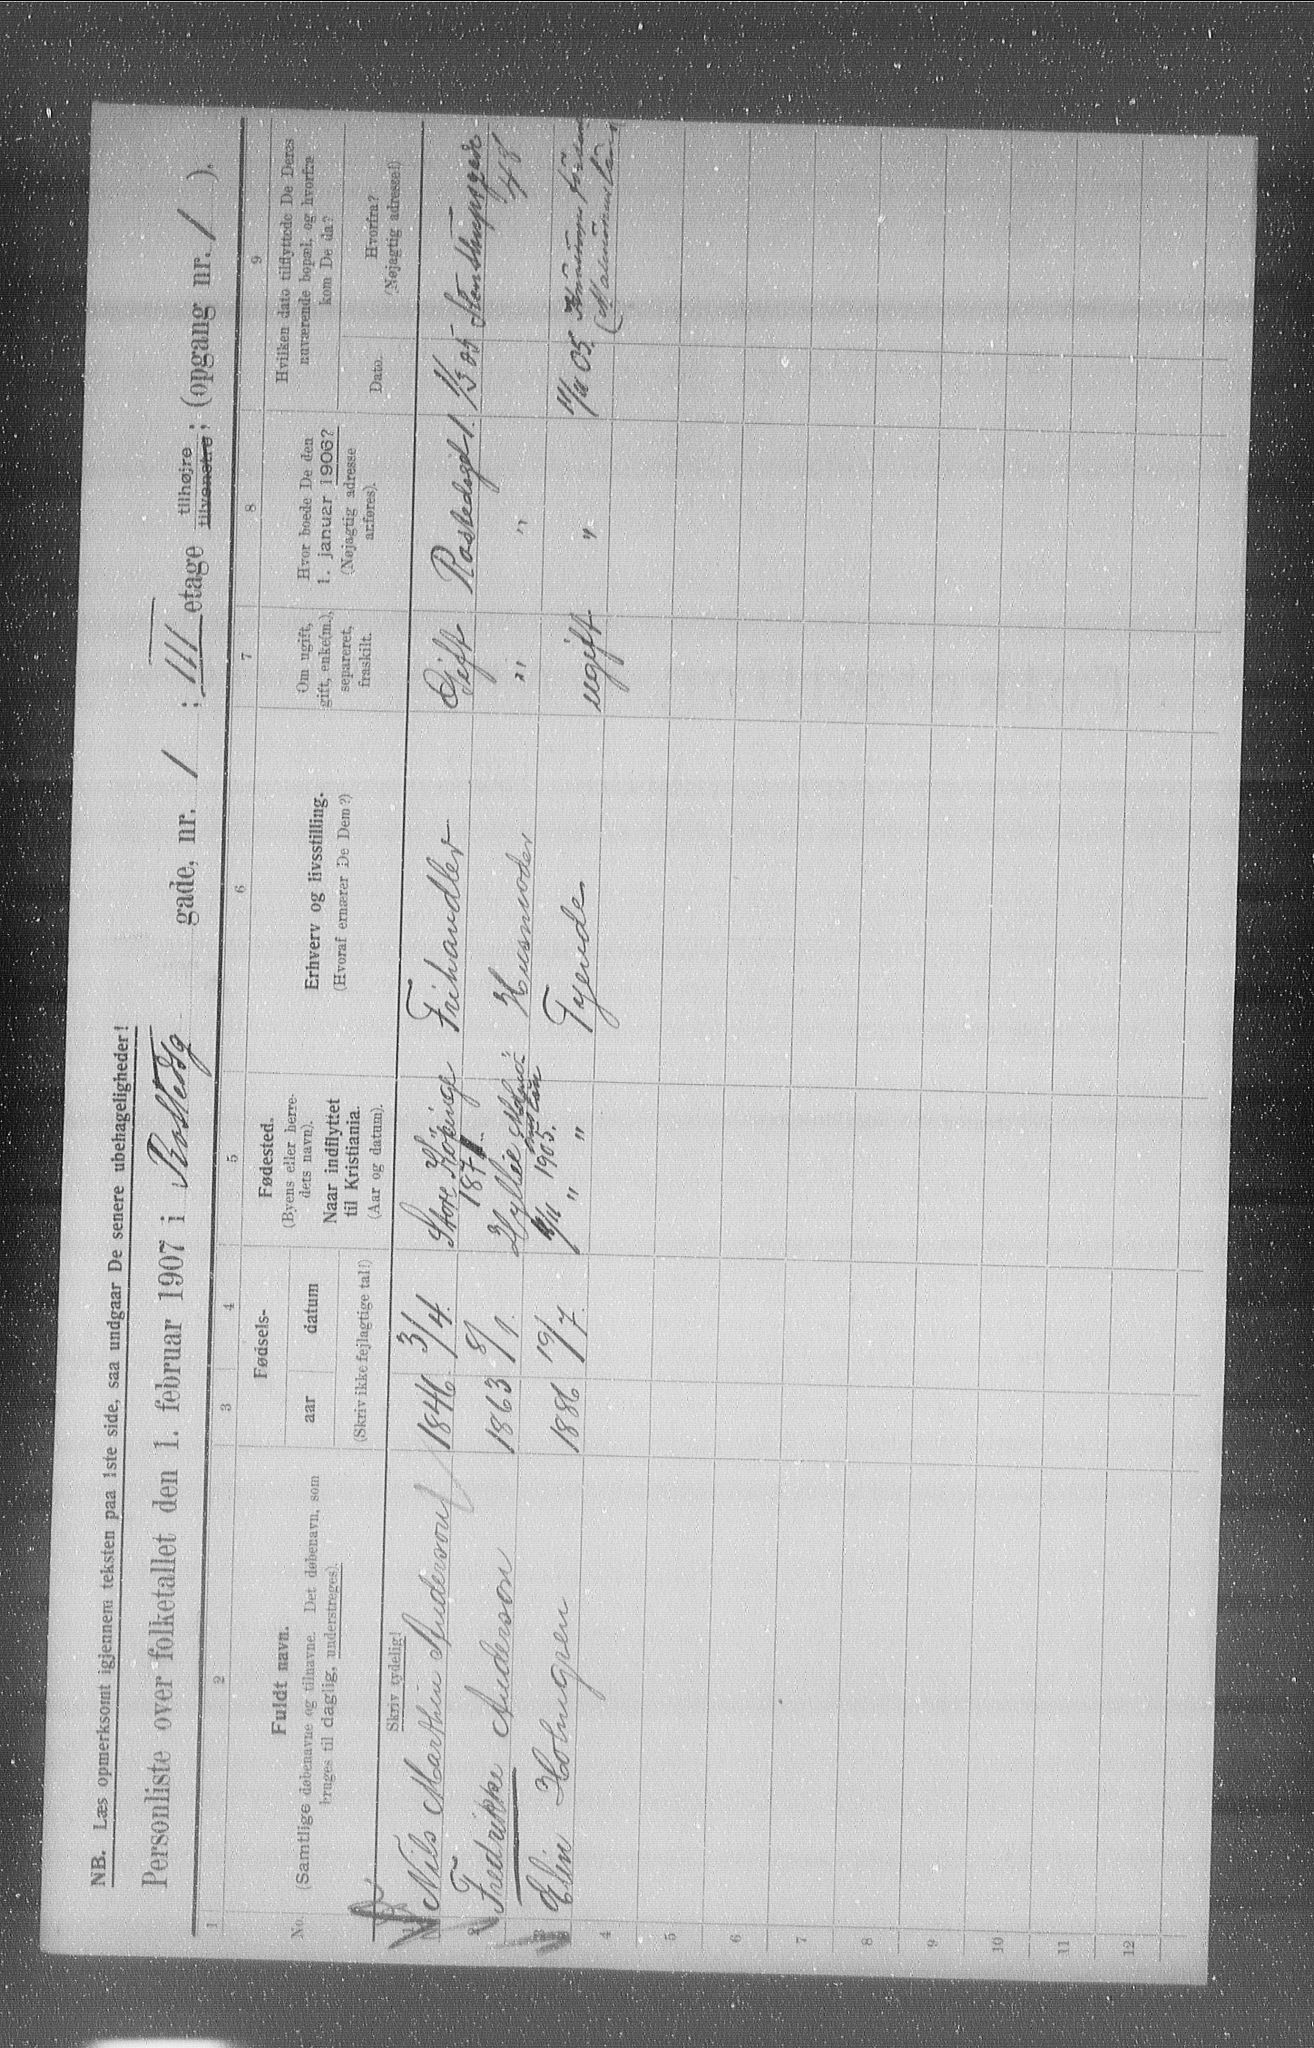 NB. Læs opmerksomt igjennem teksten paa 1ste side, saa undgaar De senere ubehageligheder!
Personliste over folketallet den 1. februar 1907 i Rostedsg gade, nr. 1 ; III etage tilhøjre tilvenstre ; (opgang nr. 1 ).
1 2 3 4 5 6 7 8 9
No.
Fuldt navn.
(Samtlige døbenavne og tilnavne. Det døbenavn, som
bruges til daglig, understreges).
Skriv tydelig!
Fødsels-
aar datum
(Skriv ikke fejlagtige tal!)
Fødested.
(Byens eller herre-
dets navn).
Naar indflyttet
til Kristiania.
(Aar og datum).
Erhverv og livsstilling.
(Hvoraf ernærer De Dem?)
Om ugift,
gift, enke(m.),
separeret,
fraskilt.
Hvor boede De den
1. januar 1906?
(Nøjagtig adresse
anføres).
Hvilken dato tilflyttede De Deres
nuværende bopæl, og hvorfra
kom De da?
Dato.
Hvorfra?
(Nøjagtig adresse!)
1 Nils Marthin Anderson 1846 3/4. Store Köpinge 187 Frihandler Gift Rostedsgt 1. 1/3 05 Stenstrupgade 48
2 Fredrikke Anderson 1863 8/1. Hyllie 1905. Husmoder " "
3 Elin Holmgren 1886 19/7. " " Tyende ugift " 11/11 05.
4
5
6
7
8
9
10
11
12